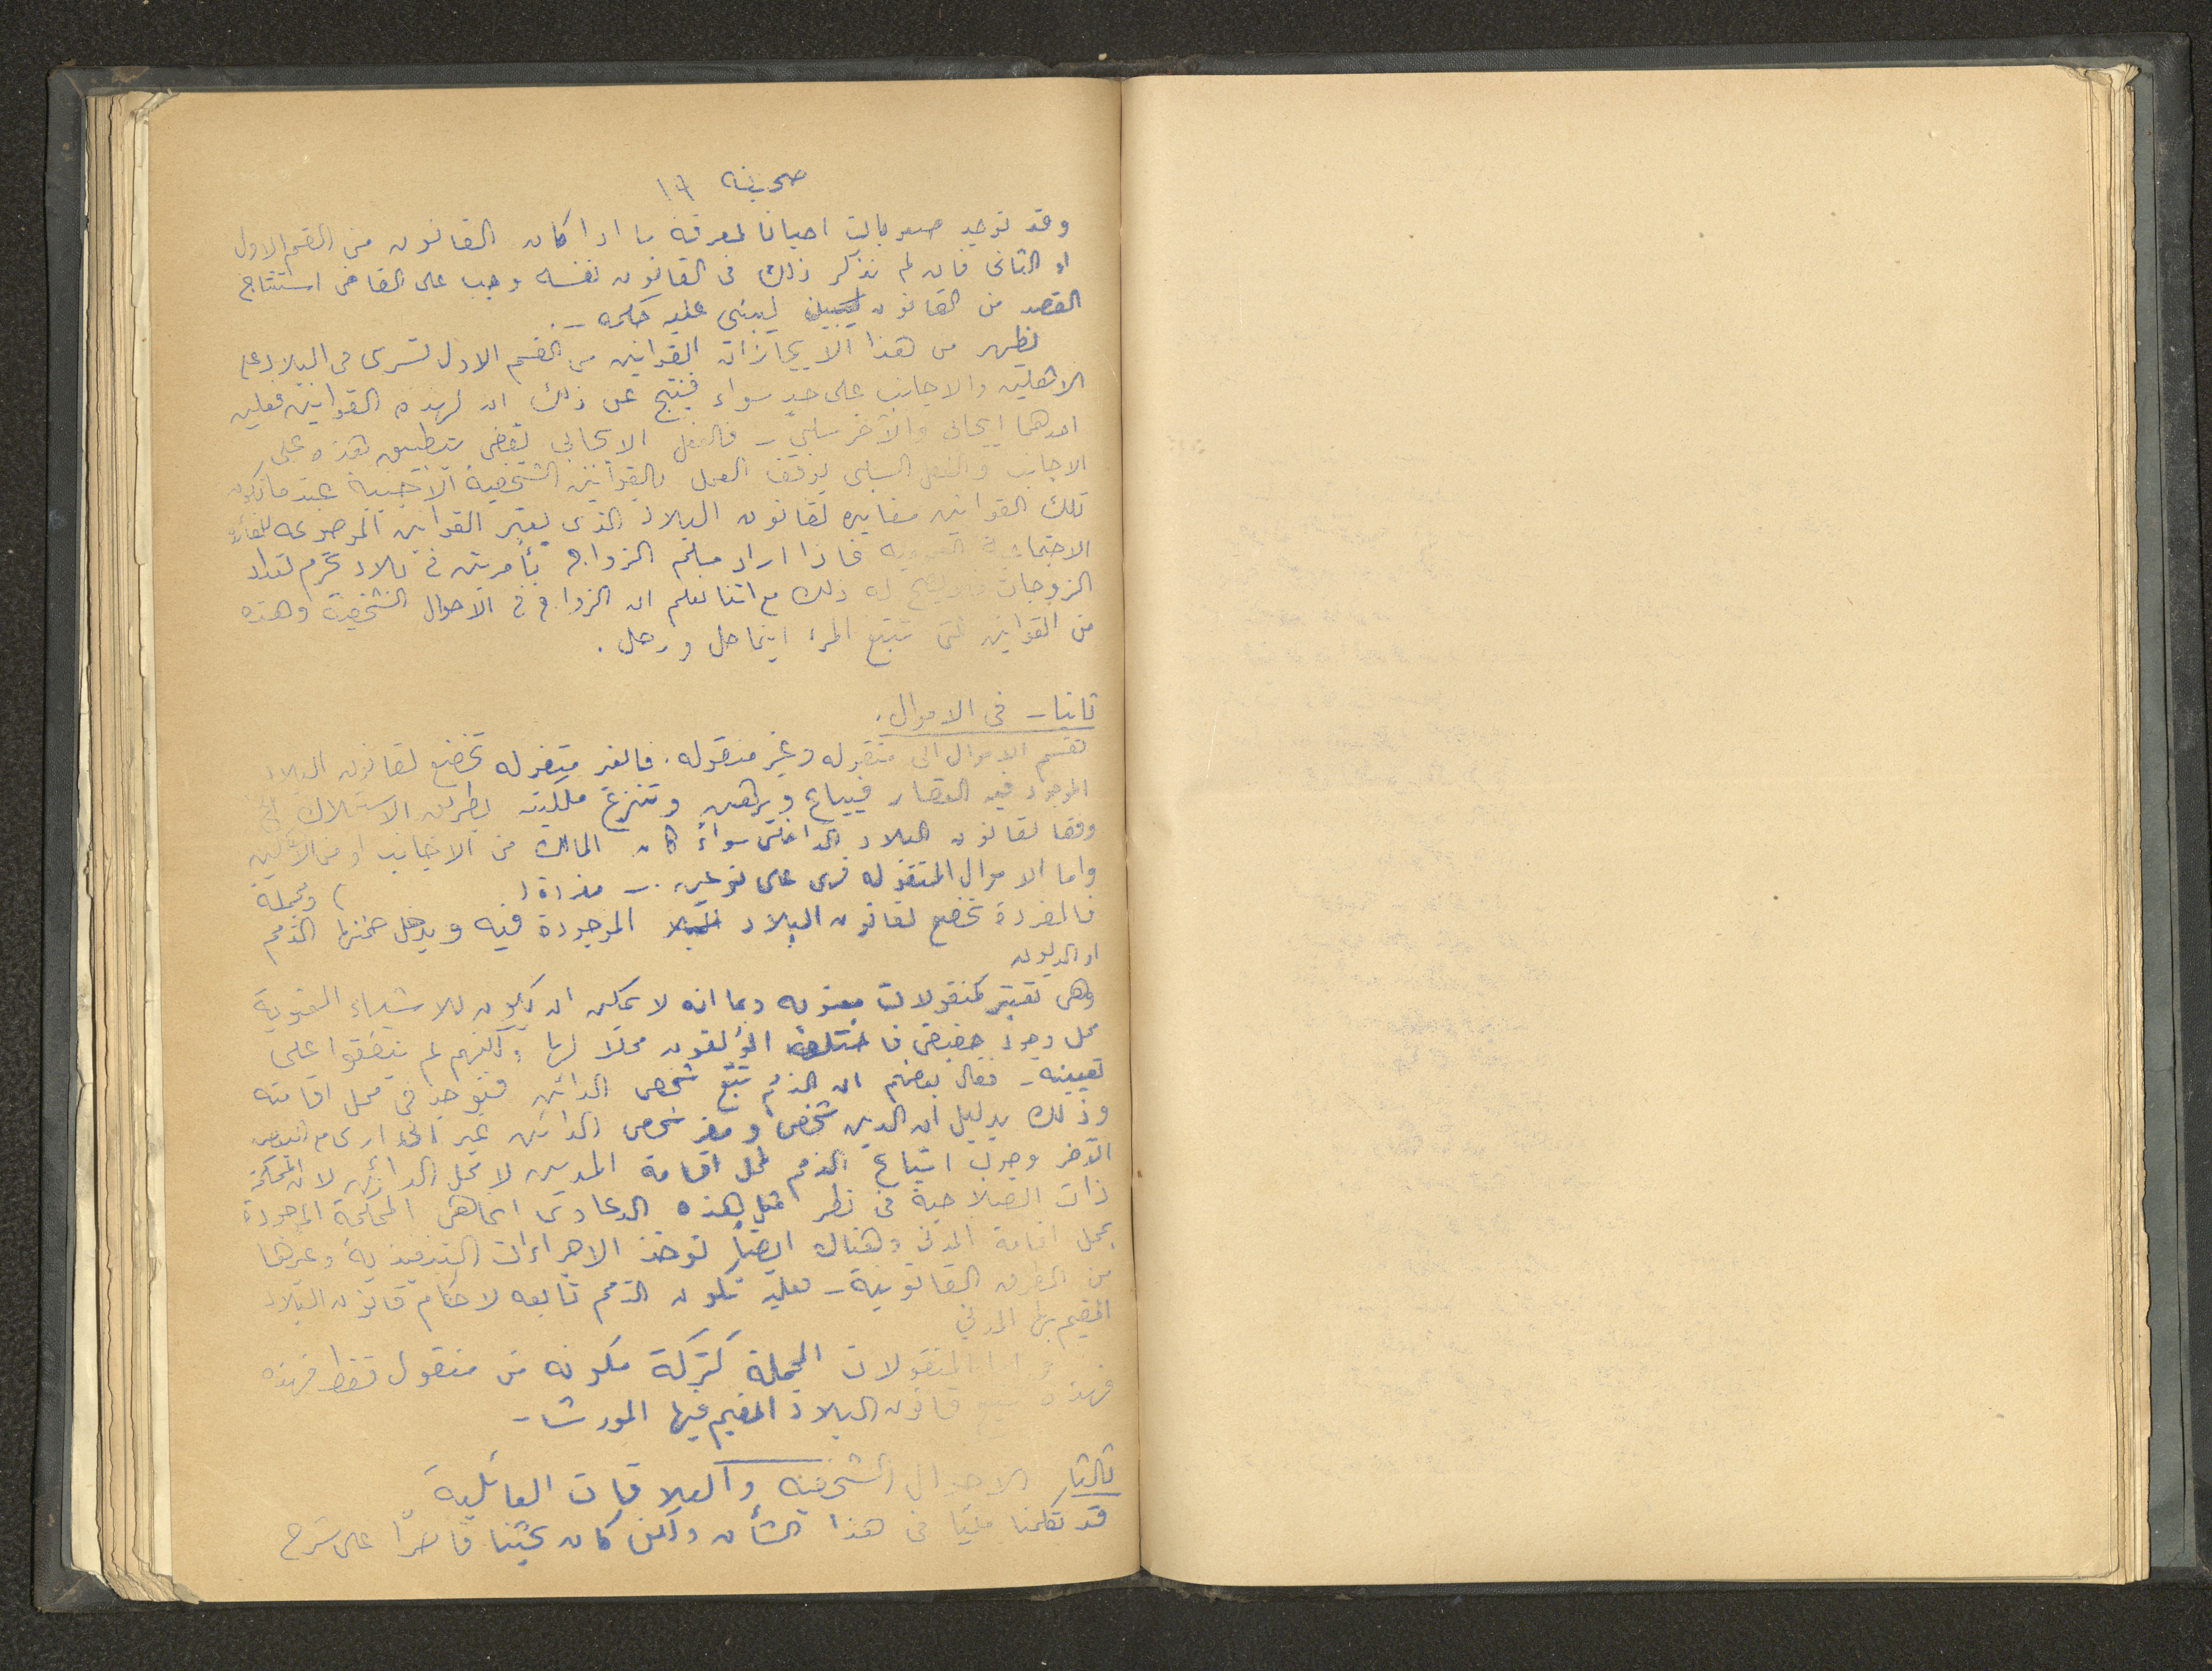 صحيفه ١٦
وقد توجد صعوبات احيانا لمعرفة ما اذا كان القانون من القسم الاول
او الثاني فان لم نذكر ذلك في القانون نفسه وجب على القاضي استنتاج
القصد من القانون ليبني عليه حكمه -.
يظهر من هذا الايجاز ان القوانين من القسم الاول تسري في البلاد على
الاهلين والاجانب على حد سواء فينتج عن ذلك ان لهذه القوانين فعلين
احدهما ايجابي والآخر سلبي - فالفعل الايجابي يقضي بتطبيق هذه على
الاجانب والفعل السلبي يوقف العمل بالقوانين الشخصية الاجنبية عندما تكون
تلك القوانين مغايره لقانون البلاد الذي يعتبر القوانين الموضوعه للفائدة
الاجتماعية العمومية فاذا اراد مسلم الزواج بأمرتين في بلاد تحرم تعداد
الزوجات فلا يصح له ذلك مع اننا نعلم ان الزواج في الاحوال الشخصية وهذه
من القوانين التي تتبع المرء اينما حل ورحل .
ثانيا - في الاموال .
تقسم الاموال الى منقوله وغير منقوله . فالغير منقوله تخضع لقانون البلاد
الموجود فيه العقار فيباع ويرهن وتنزع ملكيته بطريق الاستملاك الخ
وفقا لقانون البلاد الداخلي سواء كان المالك من الاجانب او من الاهلين
واما الاموال المنقوله فهي على نوعين .- مفردة ( ) ومجملة
فالمفردة تخضع لقانون البلاد الموجودة فيه ويدخل ضمنها الذمم
او الديون
وهي تعتبر كمنقولات معنويه وبما انه لا يمكن ان يكون للاشياء المعنوية
محل وجود حقيقي فاختلف المؤلفون محلا لها ولكنهم لم يتفقوا على
تعيينه - فقال بعضهم ان الذمم تتبع شخص الدائن فتوجد في محل اقامته
وذلك بدليل ان الدين شخصي ومقر شخص الدائن غير انه ارى مع البعض
الآخر وجوب اتباع الذمم لمحل اقامة المدين لا محل الدائن لان المحكمة
ذات الصلاحية في نظر مثل هذه الدعاوى انما هي المحكمة الموجودة
بمحل اقامة المدين وهناك ايضا توخذ الاجراءات التنفيذية وغيرها
من الطرق القانونية - فعليه تكون الذمم تابعه لاحكام قانون البلاد
المقيم بها المدين
واما المنقولات المجملة كتركة مكونه من منقول فقط فهذه
فهذه تتبع قانون البلاد المقيم فيها المورث -
ثالثا الاحوال الشخصية والعلاقات العائلية
قد تكلمنا مليا في هذا الشأن ولكن كان بحثنا قاصرا على شرح